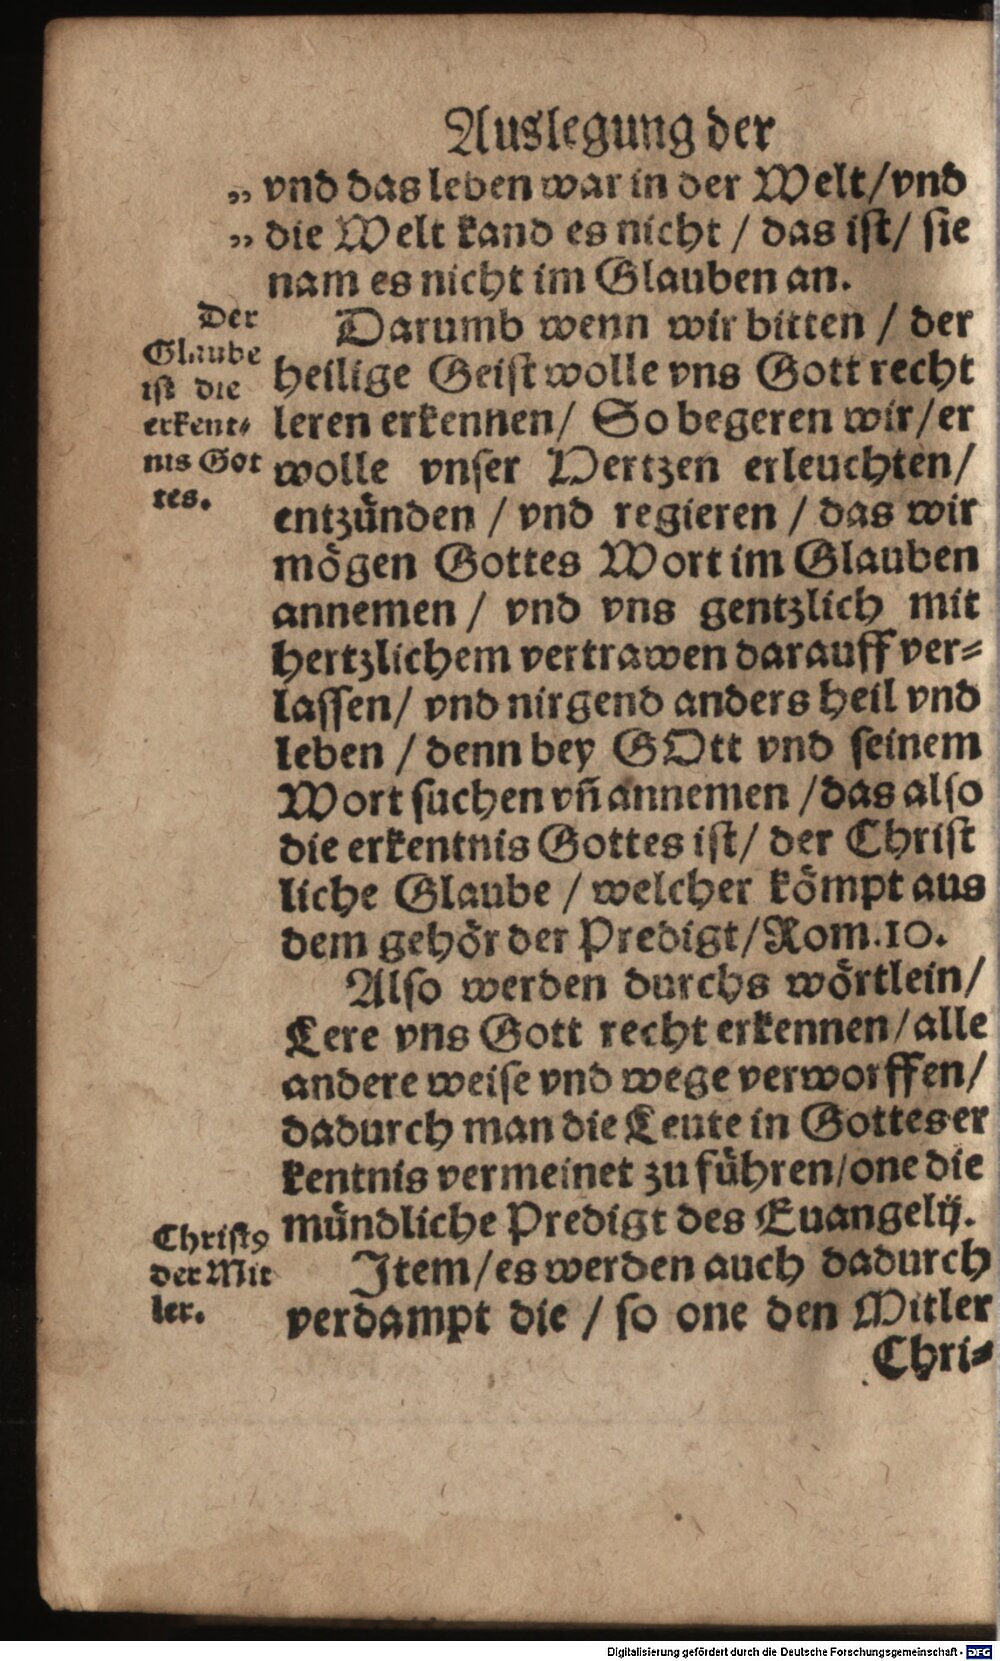 Auslegung der
„ vnd das leben war in der Welt/vnd
„ die Welt kand es nicht / das ist/ sie
nam es nicht im Glauben an.
Der
Glaube
ist die
erkent⸗
nis Got
tes.
Darumb wenn wir bitten / der
heilige Geist wolle vns Gott recht
leren erkennen/ So begeren wir/er
wolle vnser Hertzen erleuchten/
entzünden / vnd regieren / das wir
mögen Gottes Wort im Glauben
annemen / vnd vns gentzlich mit
hertzlichem vertrawen darauff ver⸗
lassen/ vnd nirgend anders heil vnd
leben / denn bey GOtt vnd seinem
Wort suchen vñ annemen /das also
die erkentnis Gottes ist/ der Christ
liche Glaube / welcher kömpt aus
dem gehör der Predigt/Rom.10.
Also werden durchs wörtlein/
Lere vns Gott recht erkennen/alle
andere weise vnd wege verworffen/
dadurch man die Leute in Gottes er
kentnis vermeinet zu führen/one die
mündliche Predigt des Euangelij.
Christ9
der Mit
ler.
Item/es werden auch dadurch
verdampt die / so one den Mitler
Chri⸗
Digitalisierung gefördert durch die Deutsche Forschungsgemeinschaft - DFG